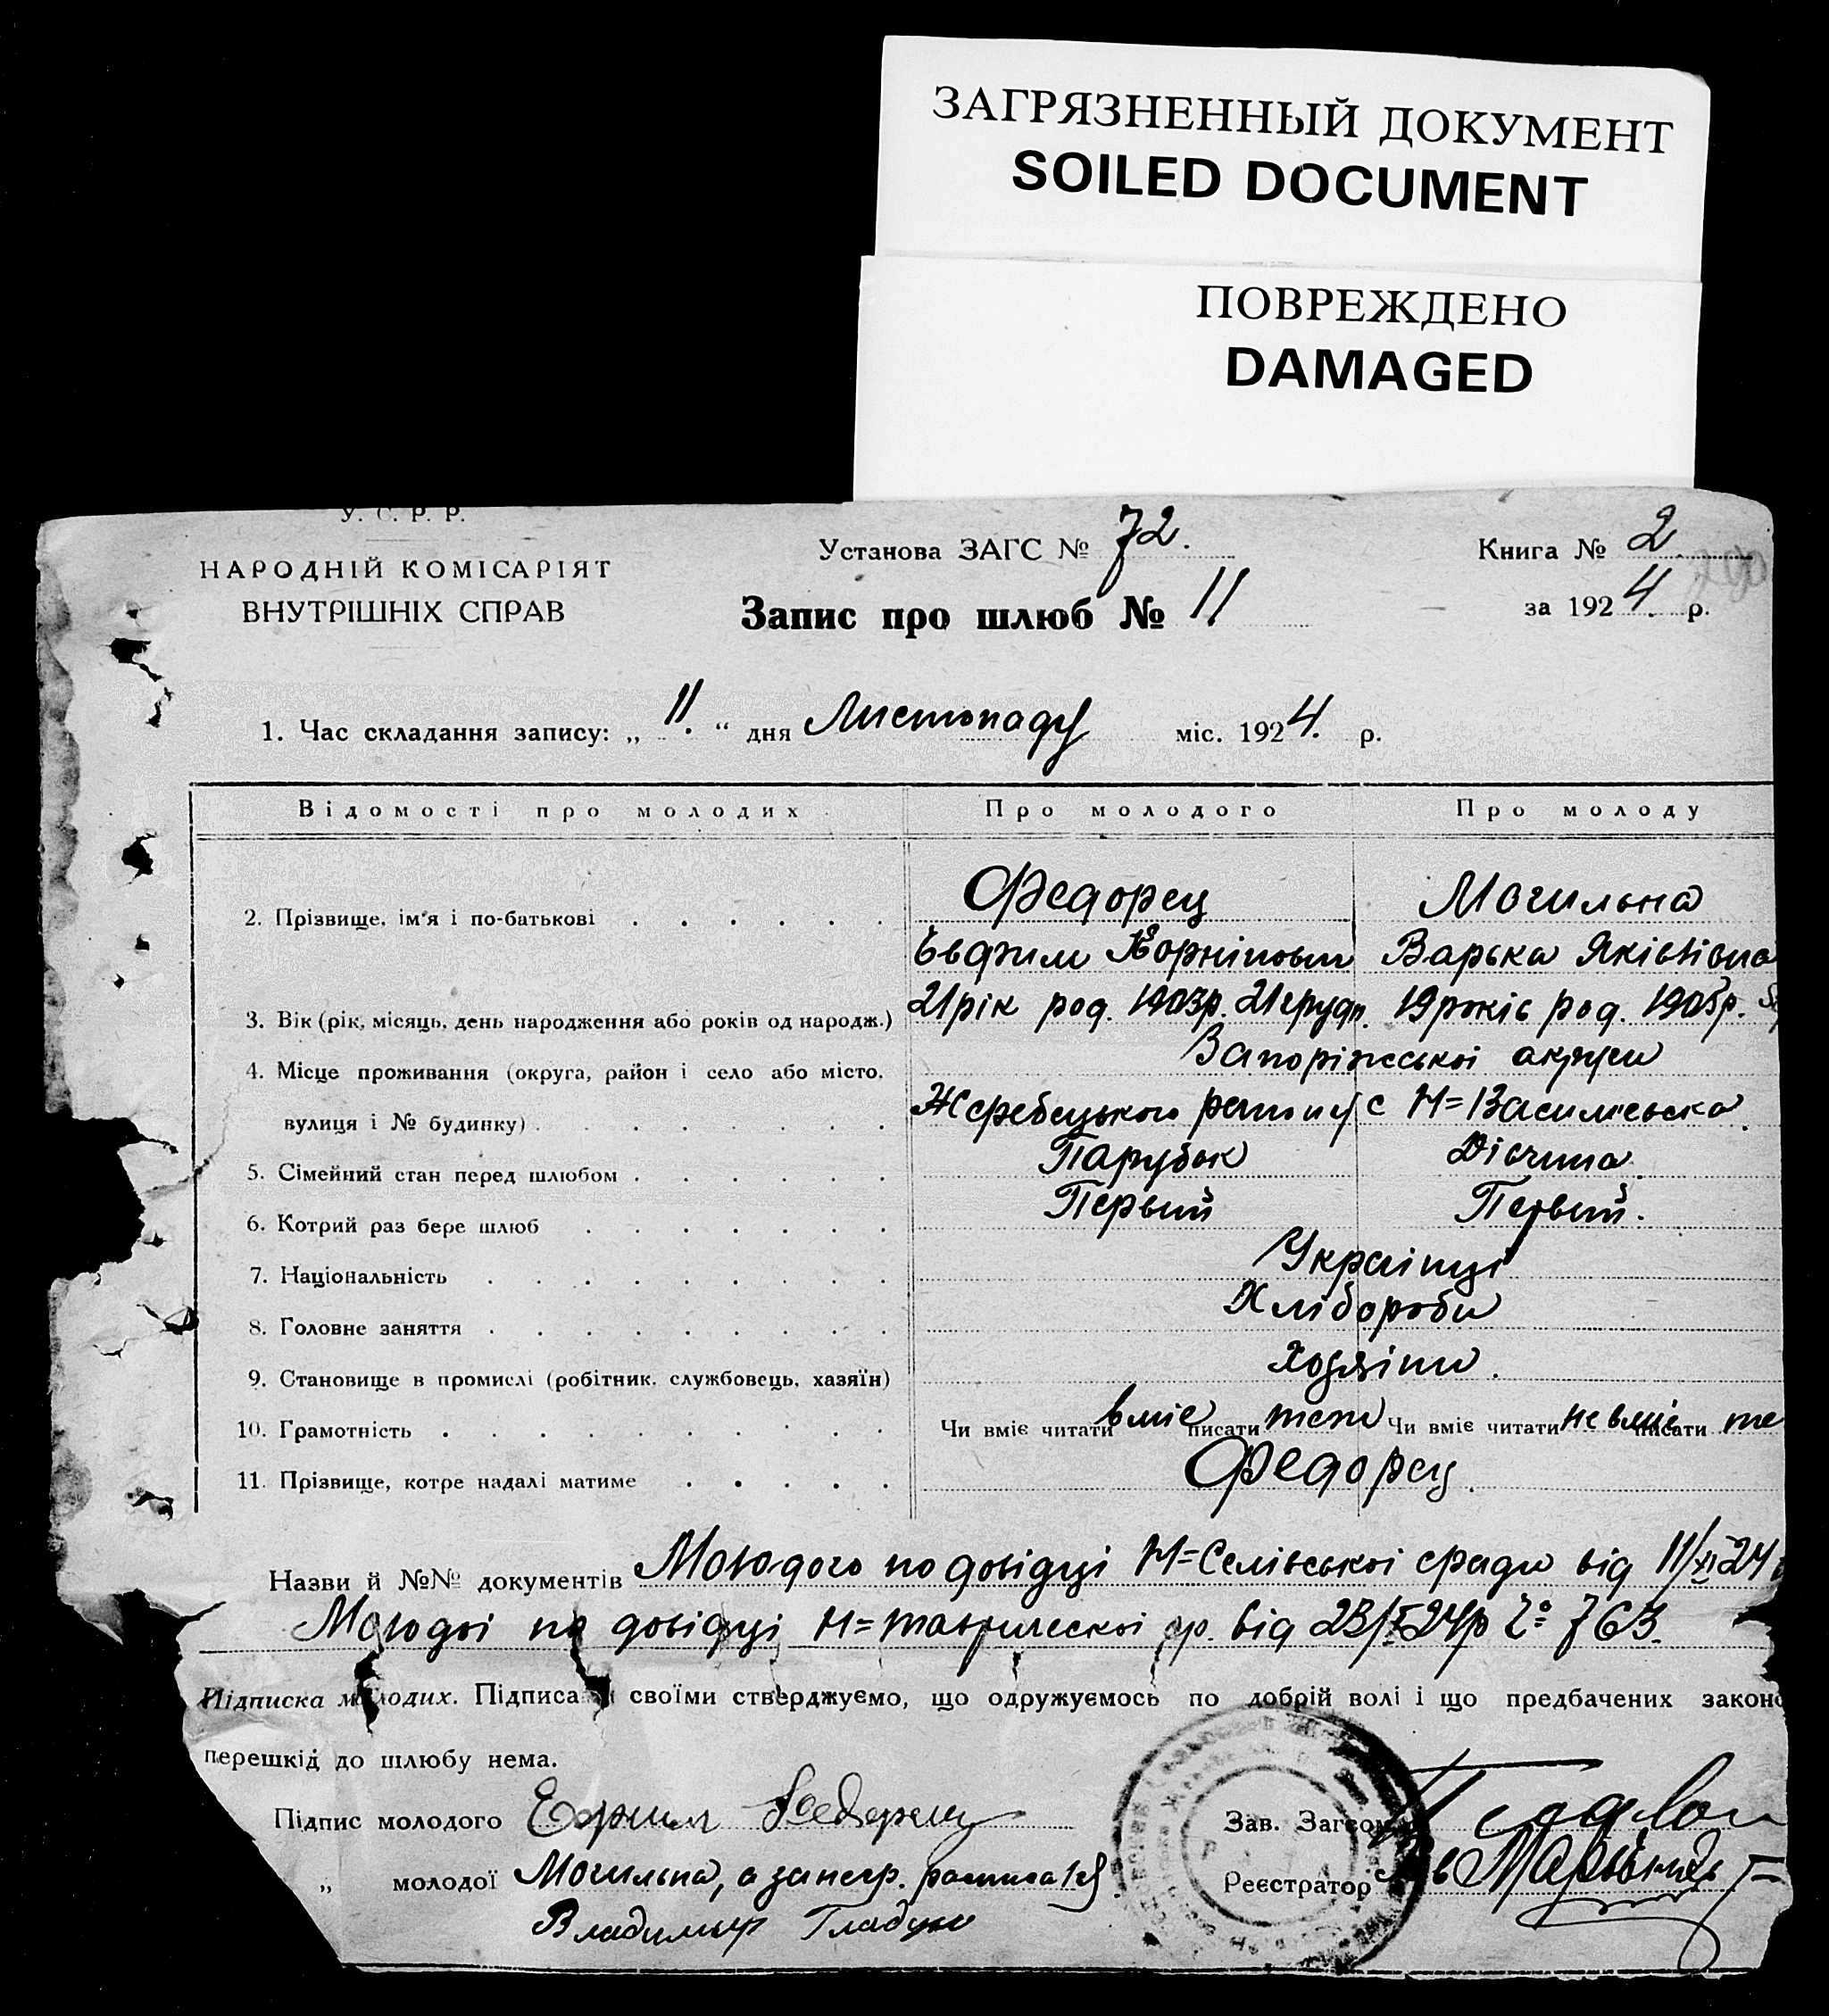 ЗАГРЯЗНЕННЫЙ ДОКУМЕНТ
SOILED DOCUMENT
ПОВРЕЖДЕНО
DAMAGED
У. С. Р. Р.
НАРОДНІЙ КОМІСАРІЯТ
ВНУТРІШНІХ СПРАВ
Установа ЗАГС № 72.
Книга № 2
Запис про шлюб № 11
за 1924. р.
1. Час складання запису: „ 11. “ дня Листопаду міс. 1924. р.
Відомості про молодих Про молодого Про молоду
Федорец Могильна
2. Прізвище, ім'я і по-батькові
Евфим Корніпович Варька Яківівна
3. Вік (рік, місяць, день народження або років од народж.) 21 рік род. 1903р. 21 грудн. 19 років род. 1905р.
4. Місце проживання (округа, район і село або місто, Запоріжської округи
вулиця і № будинку) Жеребецького району с Н=Василевська.
5. Сімейний стан перед шлюбом Парубок Дівчина
6. Котрий раз бере шлюб Первий Первий.
7. Національність Українці
8. Головне заняття Хлібороби
9. Становище в промислі (робітник, службовець, хазяїн) Хозяїни.
10. Грамотність Чи вміє читати вміє писати теж Чи вміє читати не вміє писати те
11. Прізвище, котре надалі матиме Федорец.
Назви й №№ документів Молодого по довідці Н=Селівської сради від 11/XI 24
Молодої по довідці Н=таврической ср. від 23/X 24р Ч° 763.
Підписка молодих. Підписами своїми стверджуємо, що одружуємось по добрій волі і що предбачених законо
перешкід до шлюбу нема.
Підпис молодого Ефим Федорец
Зав. Загсом
„ молодої Могильна, а за негр. расписався.
Реєстратор
Владимир Гладун